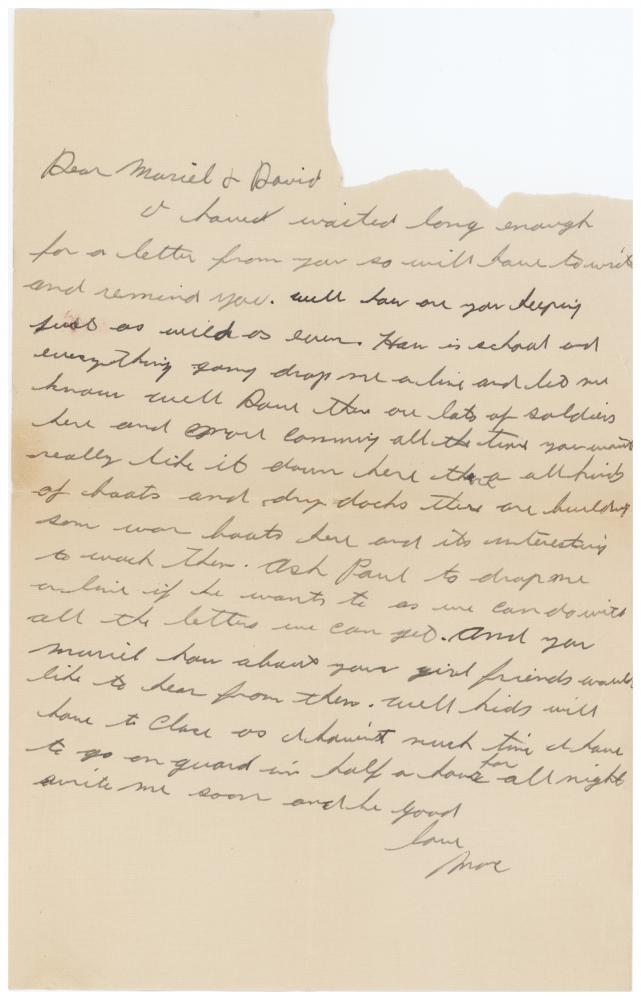 Dear Muriel & David
I haved waited long enough
for a letter from you so will have to write
and remind you. well how are you keeping
just as wild as ever. How is school and
everything going drop me a line and let me
know well Dave there are lots of soldiers
here and more comming all the time you want
really like it down here there all kinds
of boats and dry docks there are building
som war boats here and its interesting
to wach them. Ask Paul to drop me
a line if he wants to as we can do with
all the letters we can get. And you
Muriel how about your girl friends would
like to hear from them. well kids will
have to close as I havint much time I have
to go on guard in half a hour for all night
write me soon and be good
love
Moe